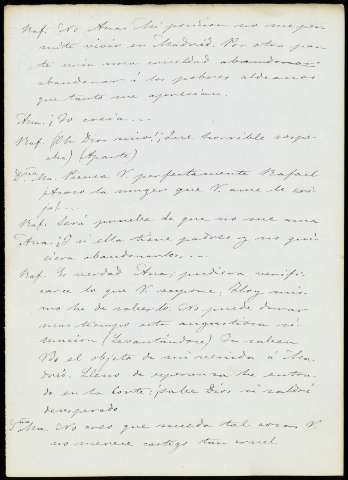 Raf. No Ana. Mi posicion no me per-
mite vivir en Madrid. Por otra par-
te seria una crueldad abandonar
abandonar á los pobres aldeanos
que tanto me aprecian.
Ana. ¡Yo creia...
Raf. ¡Oh Dios mio! ¡Que horrible sospe-
cha) (Aparte)
Dña Ma. Piensa V. perfectamente Rafael
¡Acaso la muger que V. ame le exi-
ja!...
Raf. Será prueba de que no me ama
Ana. ¿Y si ella tiene padres y no qui-
siera abandonarlos....
Raf. Es verdad Ana, pudiera verifi-
carse lo que V. supone. Hoy mis-
mo he de saberlo. No puede durar
mas tiempo esta angustiosa si-
tuacion (Levantándose) Ya saben
Vds el objeto de mi venida á Ma-
drid. Lleno de esperanza he entra-
do en la Corte: ¡sabe Dios si saldré
desesperado
Dña Ma. No creo que suceda tal cosa. V.
no merece castigo tan cruel